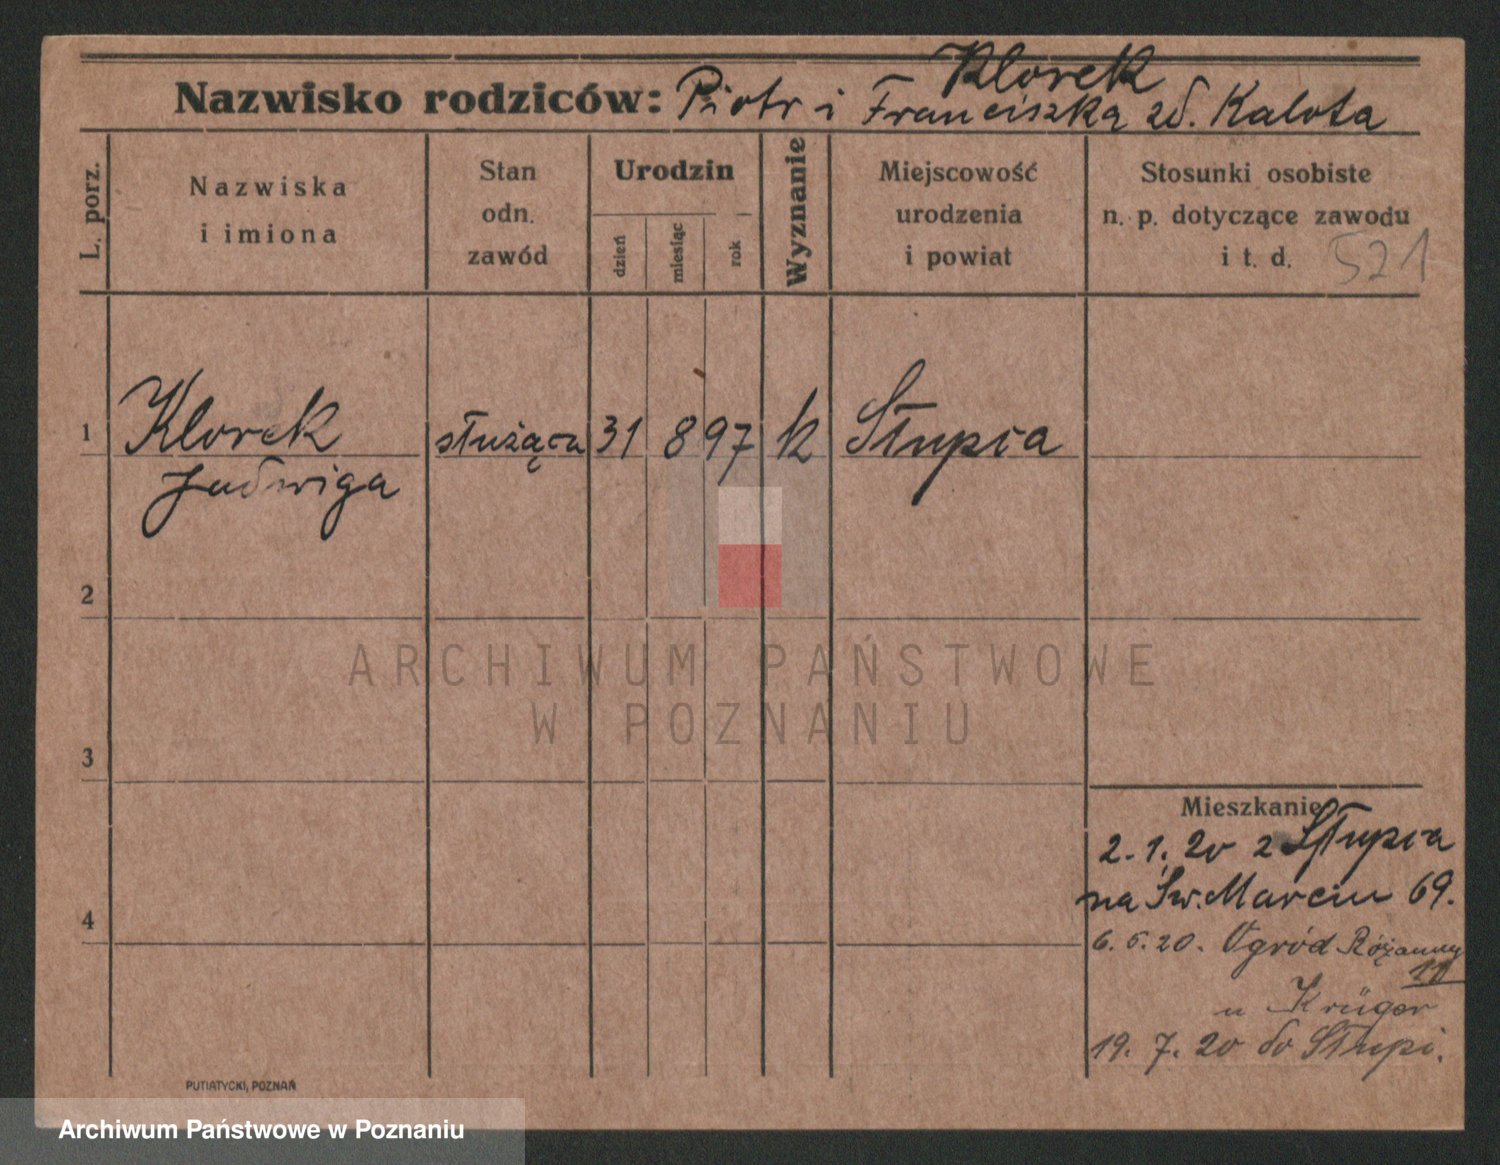 Klorek
Nazwisko rodziców: Piotr i Franciszka zd. Kalota
L. porz.
Nazwiska
i imiona
Stan
odn.
zawód
Urodzin
dzień
miesiąc
rok
Wyznanie
Miejscowość
urodzenia
i powiat
Stosunki osobiste
n. p. dotyczące zawodu
i t. d.
521
1 Klorek służąca 31 8 97 k Słupia
Jadwiga
2
ARCHIWUM PAŃSTWOWE
W POZNANIU
3
Mieszkanie
2. 1. 20 z Słupia
na Św. Marcin 69.
4
6. 5. 20. Ogród Różanny
11
u Krüger
19. 7. 20 do Słupi.
PUTIATYCKI, POZNAŃ
Archiwum Państwowe w Poznaniu